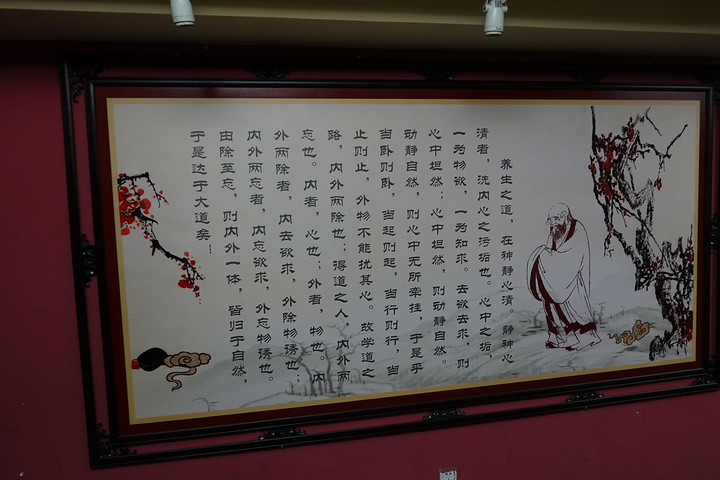 养生之道，在神静心清。静神心
清者，洗内心之污垢也。心中之垢，
一为物欲，一为知求。去欲去求，则
心中坦然；心中坦然，则动静自然。
动静自然，则心中无所牵挂，于是乎
当卧则卧，当起则起，当行则行，当
止则止，外物不能扰其心。故学道之
路，内外两除也；得道之人，内外两
忘也。内者，心也；外者，物也。内
外两除者，内去欲求，外除物诱也；
内外两忘者，内忘欲求，外忘物诱也。
由除至忘，则内外一体，皆归于自然，
于是达于大道矣！